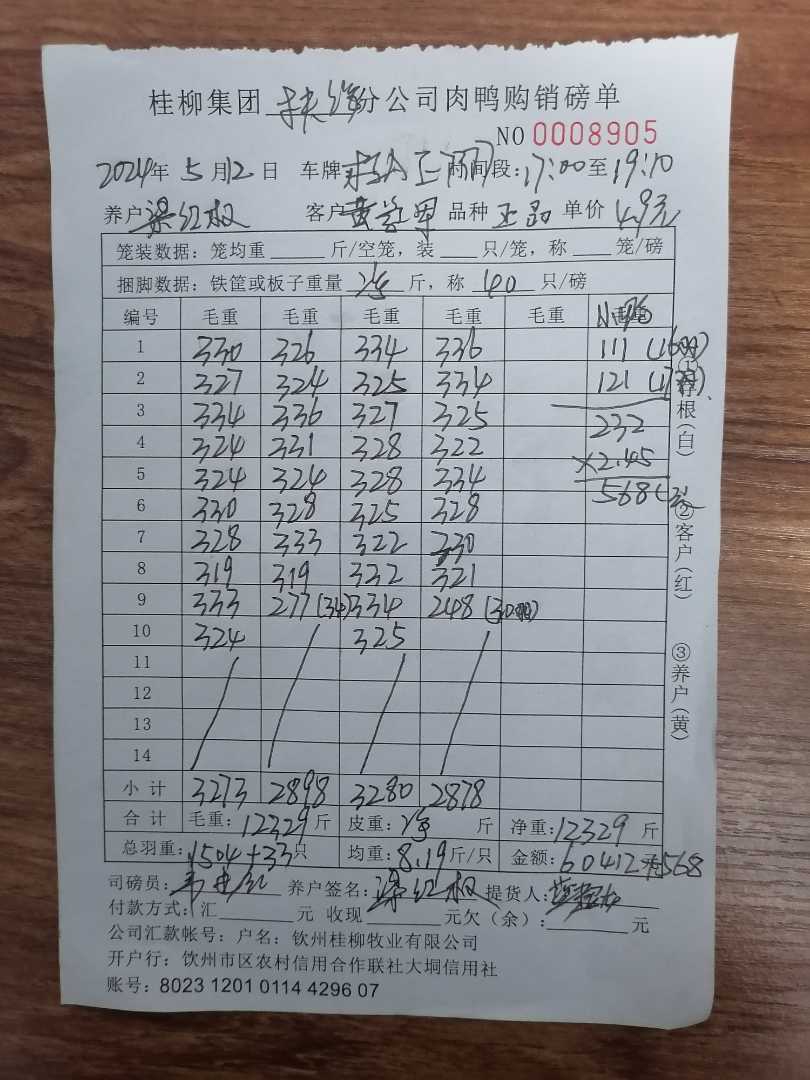 桂柳集团 分公司肉鸭购销磅单
NO 0008905
2024年 5月12日 车牌 时间段:17:00至19:10
养户 梁红权 客户 品种 正品 单价 4.9元
笼装数据：笼均重 斤/空笼，装 只/笼，称 笼/磅
捆脚数据：铁筐或板子重量 净 斤，称 40 只/磅
编号 毛重 毛重 毛重 毛重 毛重
1 330 326 334 336 111
2 327 324 325 334 121
3 334 336 327 325 232
4 324 331 328 322 ×2.45
5 324 324 328 334 568
6 330 328 325 328
7 328 333 322 330
8 319 319 332 321
9 333 277(34) 334 248(30)
10 324 325
11
12
13
14
小计 3273 2898 3280 2878
合计 毛重：12329斤 皮重：净 斤 净重：12329斤
总羽重：1504+33只 均重：8.19斤/只 金额：60412+568
司磅员： 养户签名：梁红权 提货人：
付款方式：汇 元 收现 元欠（余）： 元
公司汇款帐号：户名：钦州桂柳牧业有限公司
开户行：钦州市区农村信用合作联社大垌信用社
账号：8023 1201 0114 4296 07
①存根(白)
②客户(红)
③养户(黄)